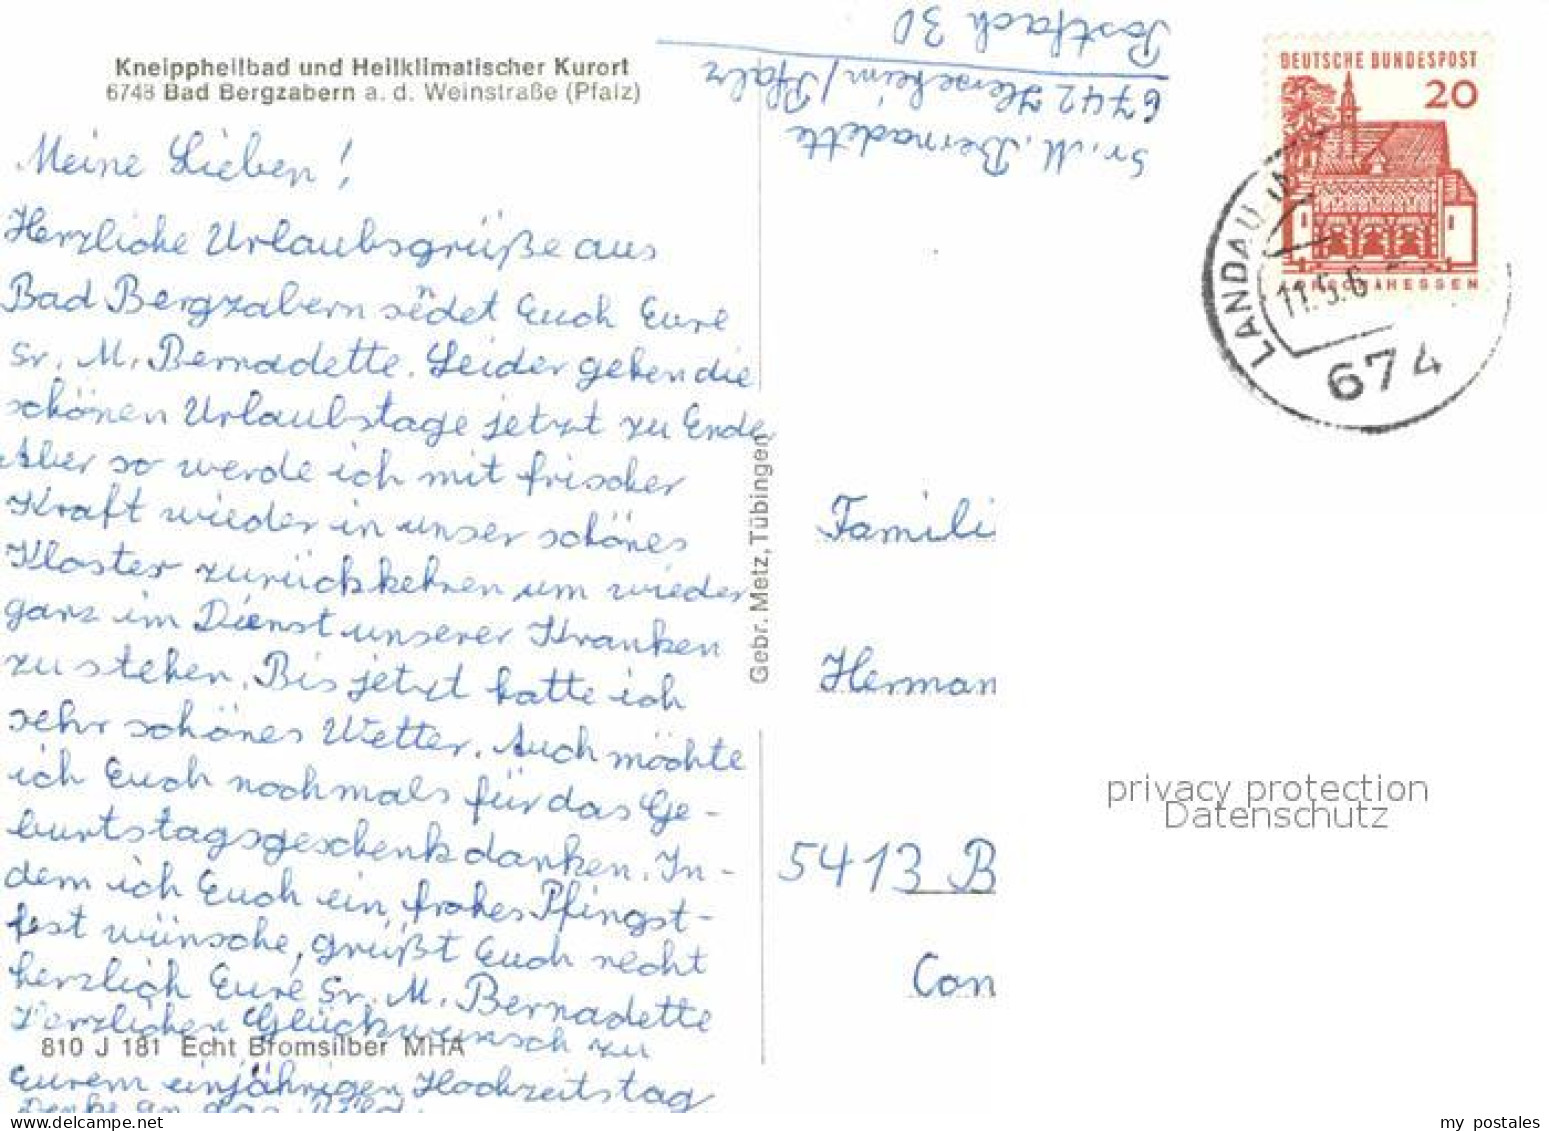 Kneippheilbad und Heilklimatischer Kurort
6748 Bad Bergzabern a. d. Weinstraße (Pfalz)
Meine Lieben!
Herzliche Urlaubsgrüße aus
Bad Bergzabern sedet Euch Eure
Sr. M. Bernadette. Leider gehen die
schönen Urlaubstage jetzt zu Ende
Aber so werde ich mit frischer
Kraft wieder in unser schönes
Kloster zurückkehren um wieder
ganz im Dienst unserer Kranken
zu stehen. Bis jetzt hatte ich
sehr schönes Wetter. Auch möchte
ich Euch nochmals für das Ge-
burtstagsgeschenk danken. In-
dem ich Euch ein frohes Pfingst-
fest wünsche, grüßt Euch recht
herzlich Eure Sr. M. Bernadette
Herzlichen Glückwunsch zu
810 J 181 Echt Bromsilber MHA
eurem einjährigen Hochzeitstag
Gebr. Metz, Tübingen
Sr. M. Bernadette
6742 Herxheim/Pfalz
Postfach 30
DEUTSCHE BUNDESPOST
20
LANDAU IN
11.5.6
674
Famili
Herman
5413 B
Con
privacy protection
Datenschutz
my postales